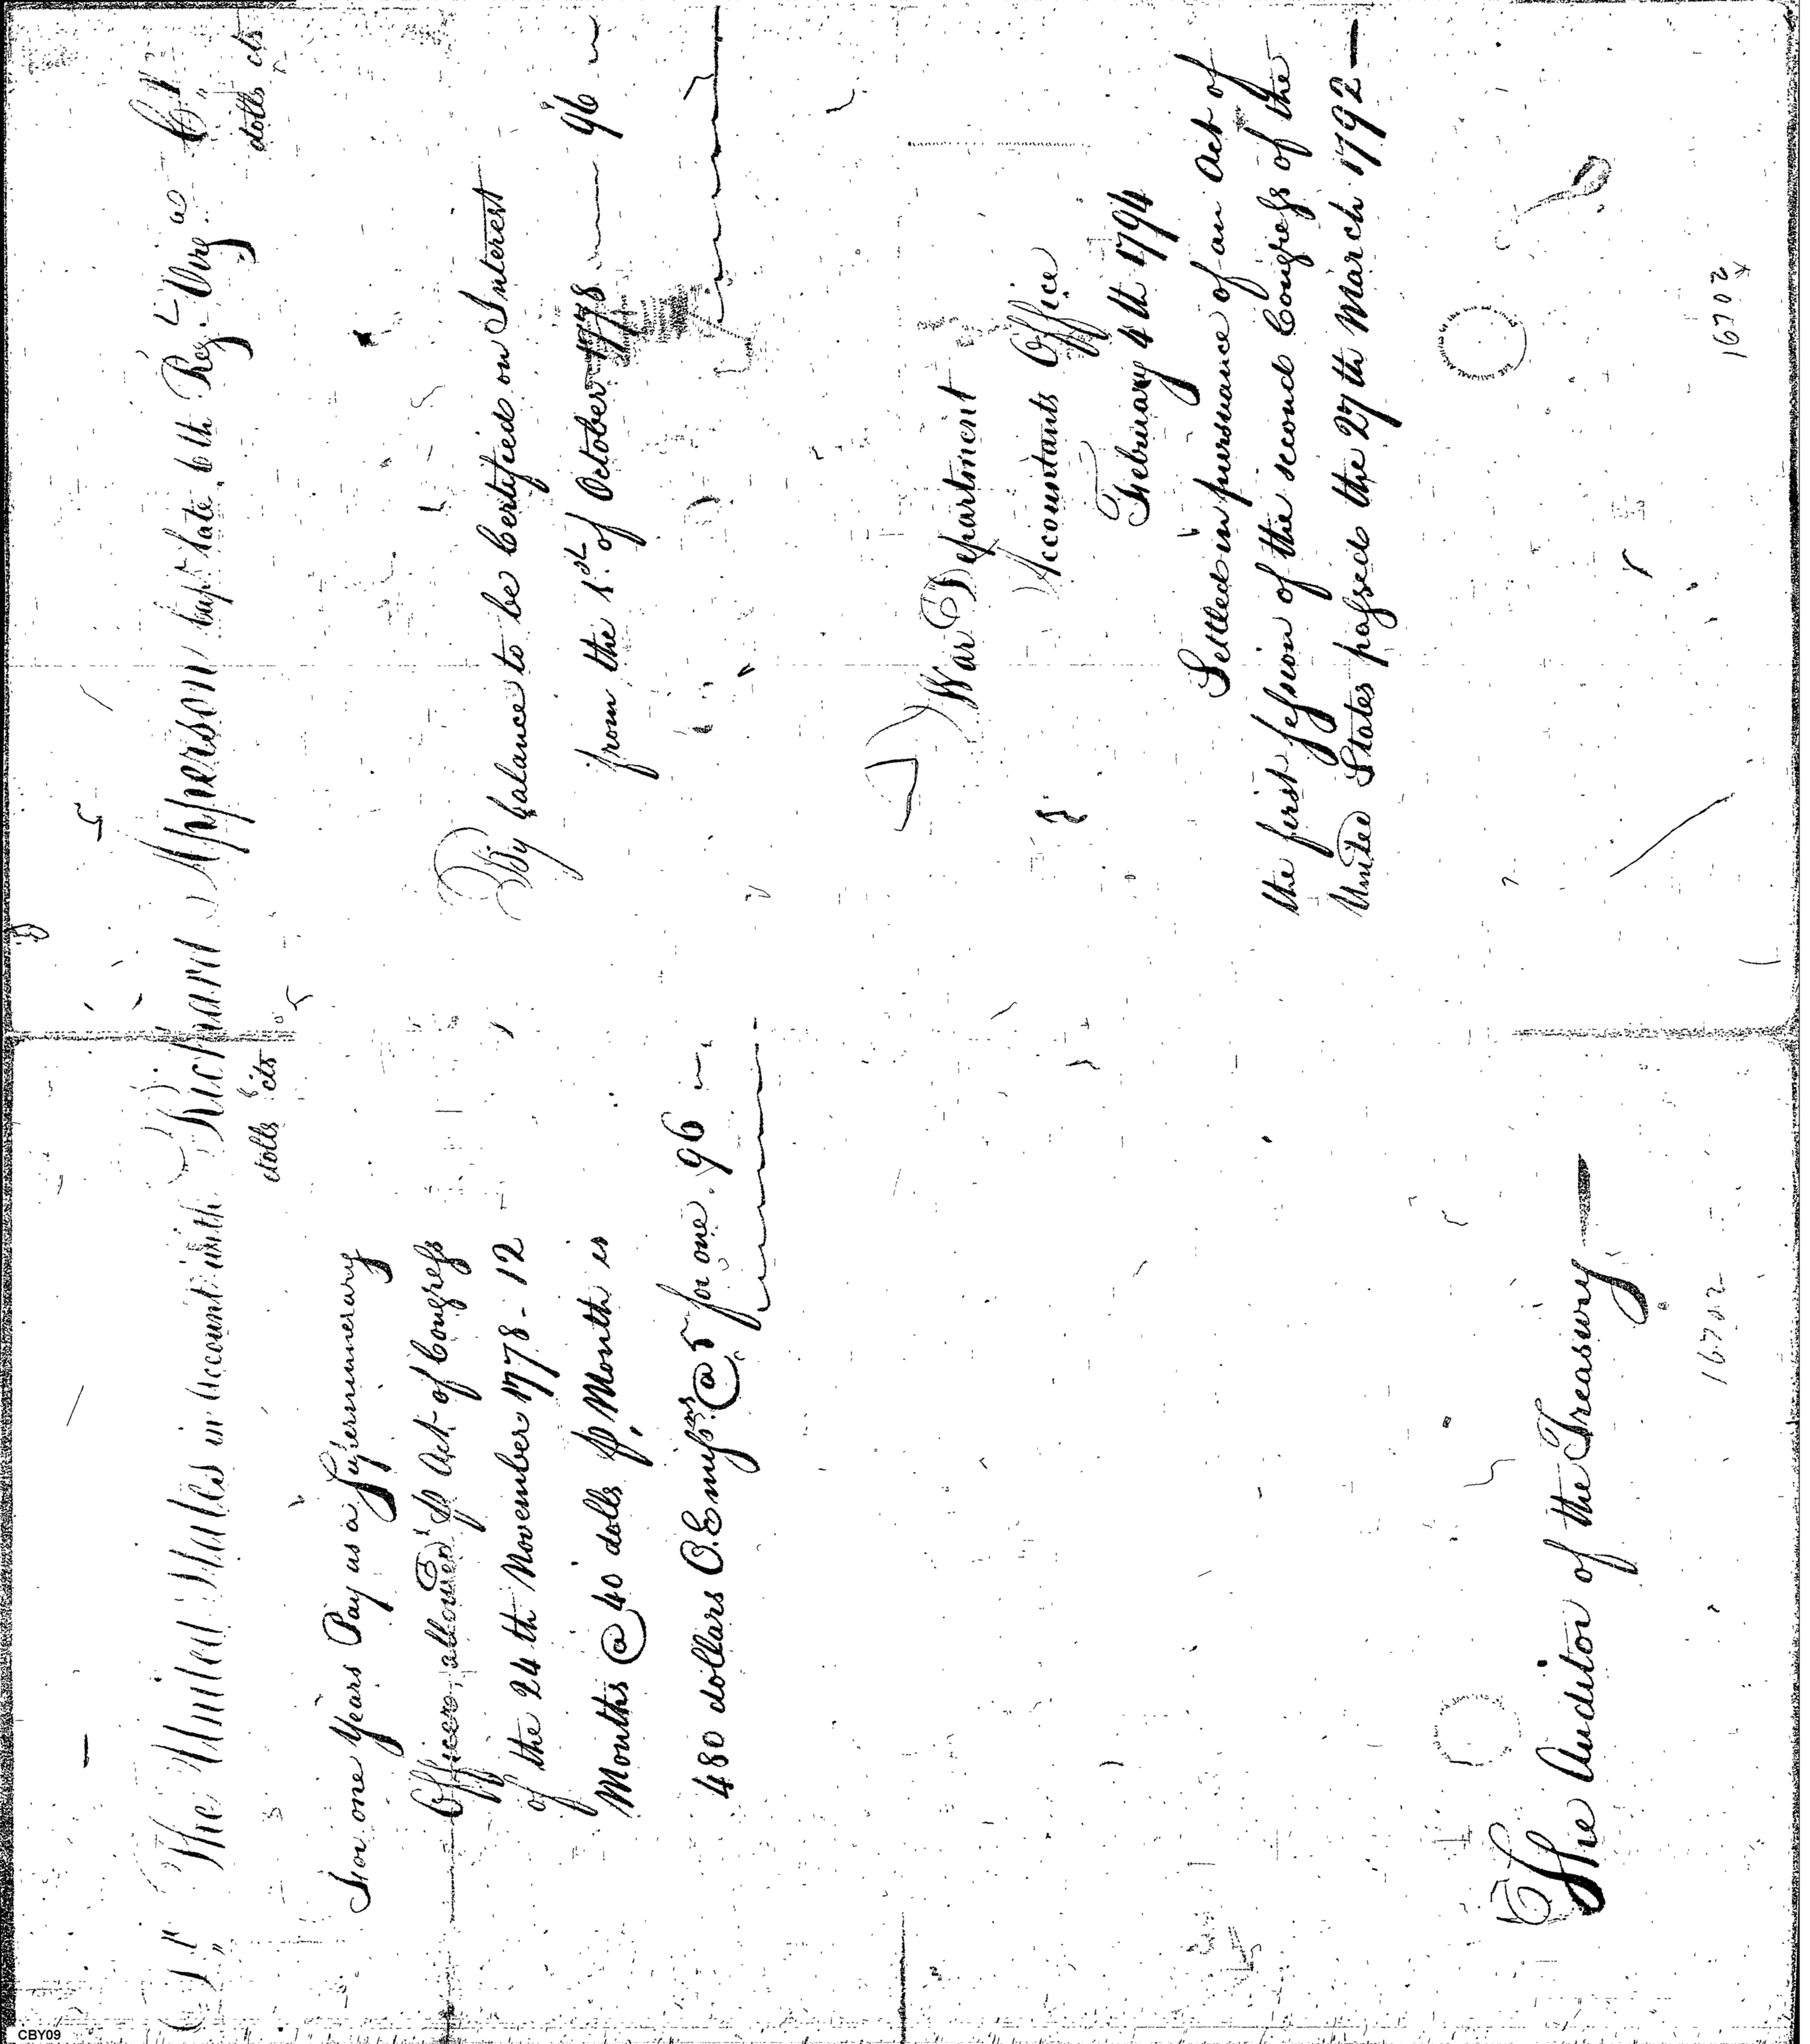 Dr. The United States in account with Richard Apperson Capt late 6th Regt Virga Cr.
dolls cts
For one Years Pay as a Supernumerary
Officer, allowed P Act of Congress
of the 24th November 1778 - 12
Months @ 40 dolls P Month is
480 dollars O. Emissns @ 5 for one. 96 ~
dolls cts
By balance to be Certified on Interest
from the 1st of October 1778 96 ~
War Department
Accountants Office
February 4th 1794
Settled in pursuance of an Act of
the first session of the second Congress of the
United States passed the 27th March 1792 —
The Auditor of the Treasury —
16702
16702
CBY09